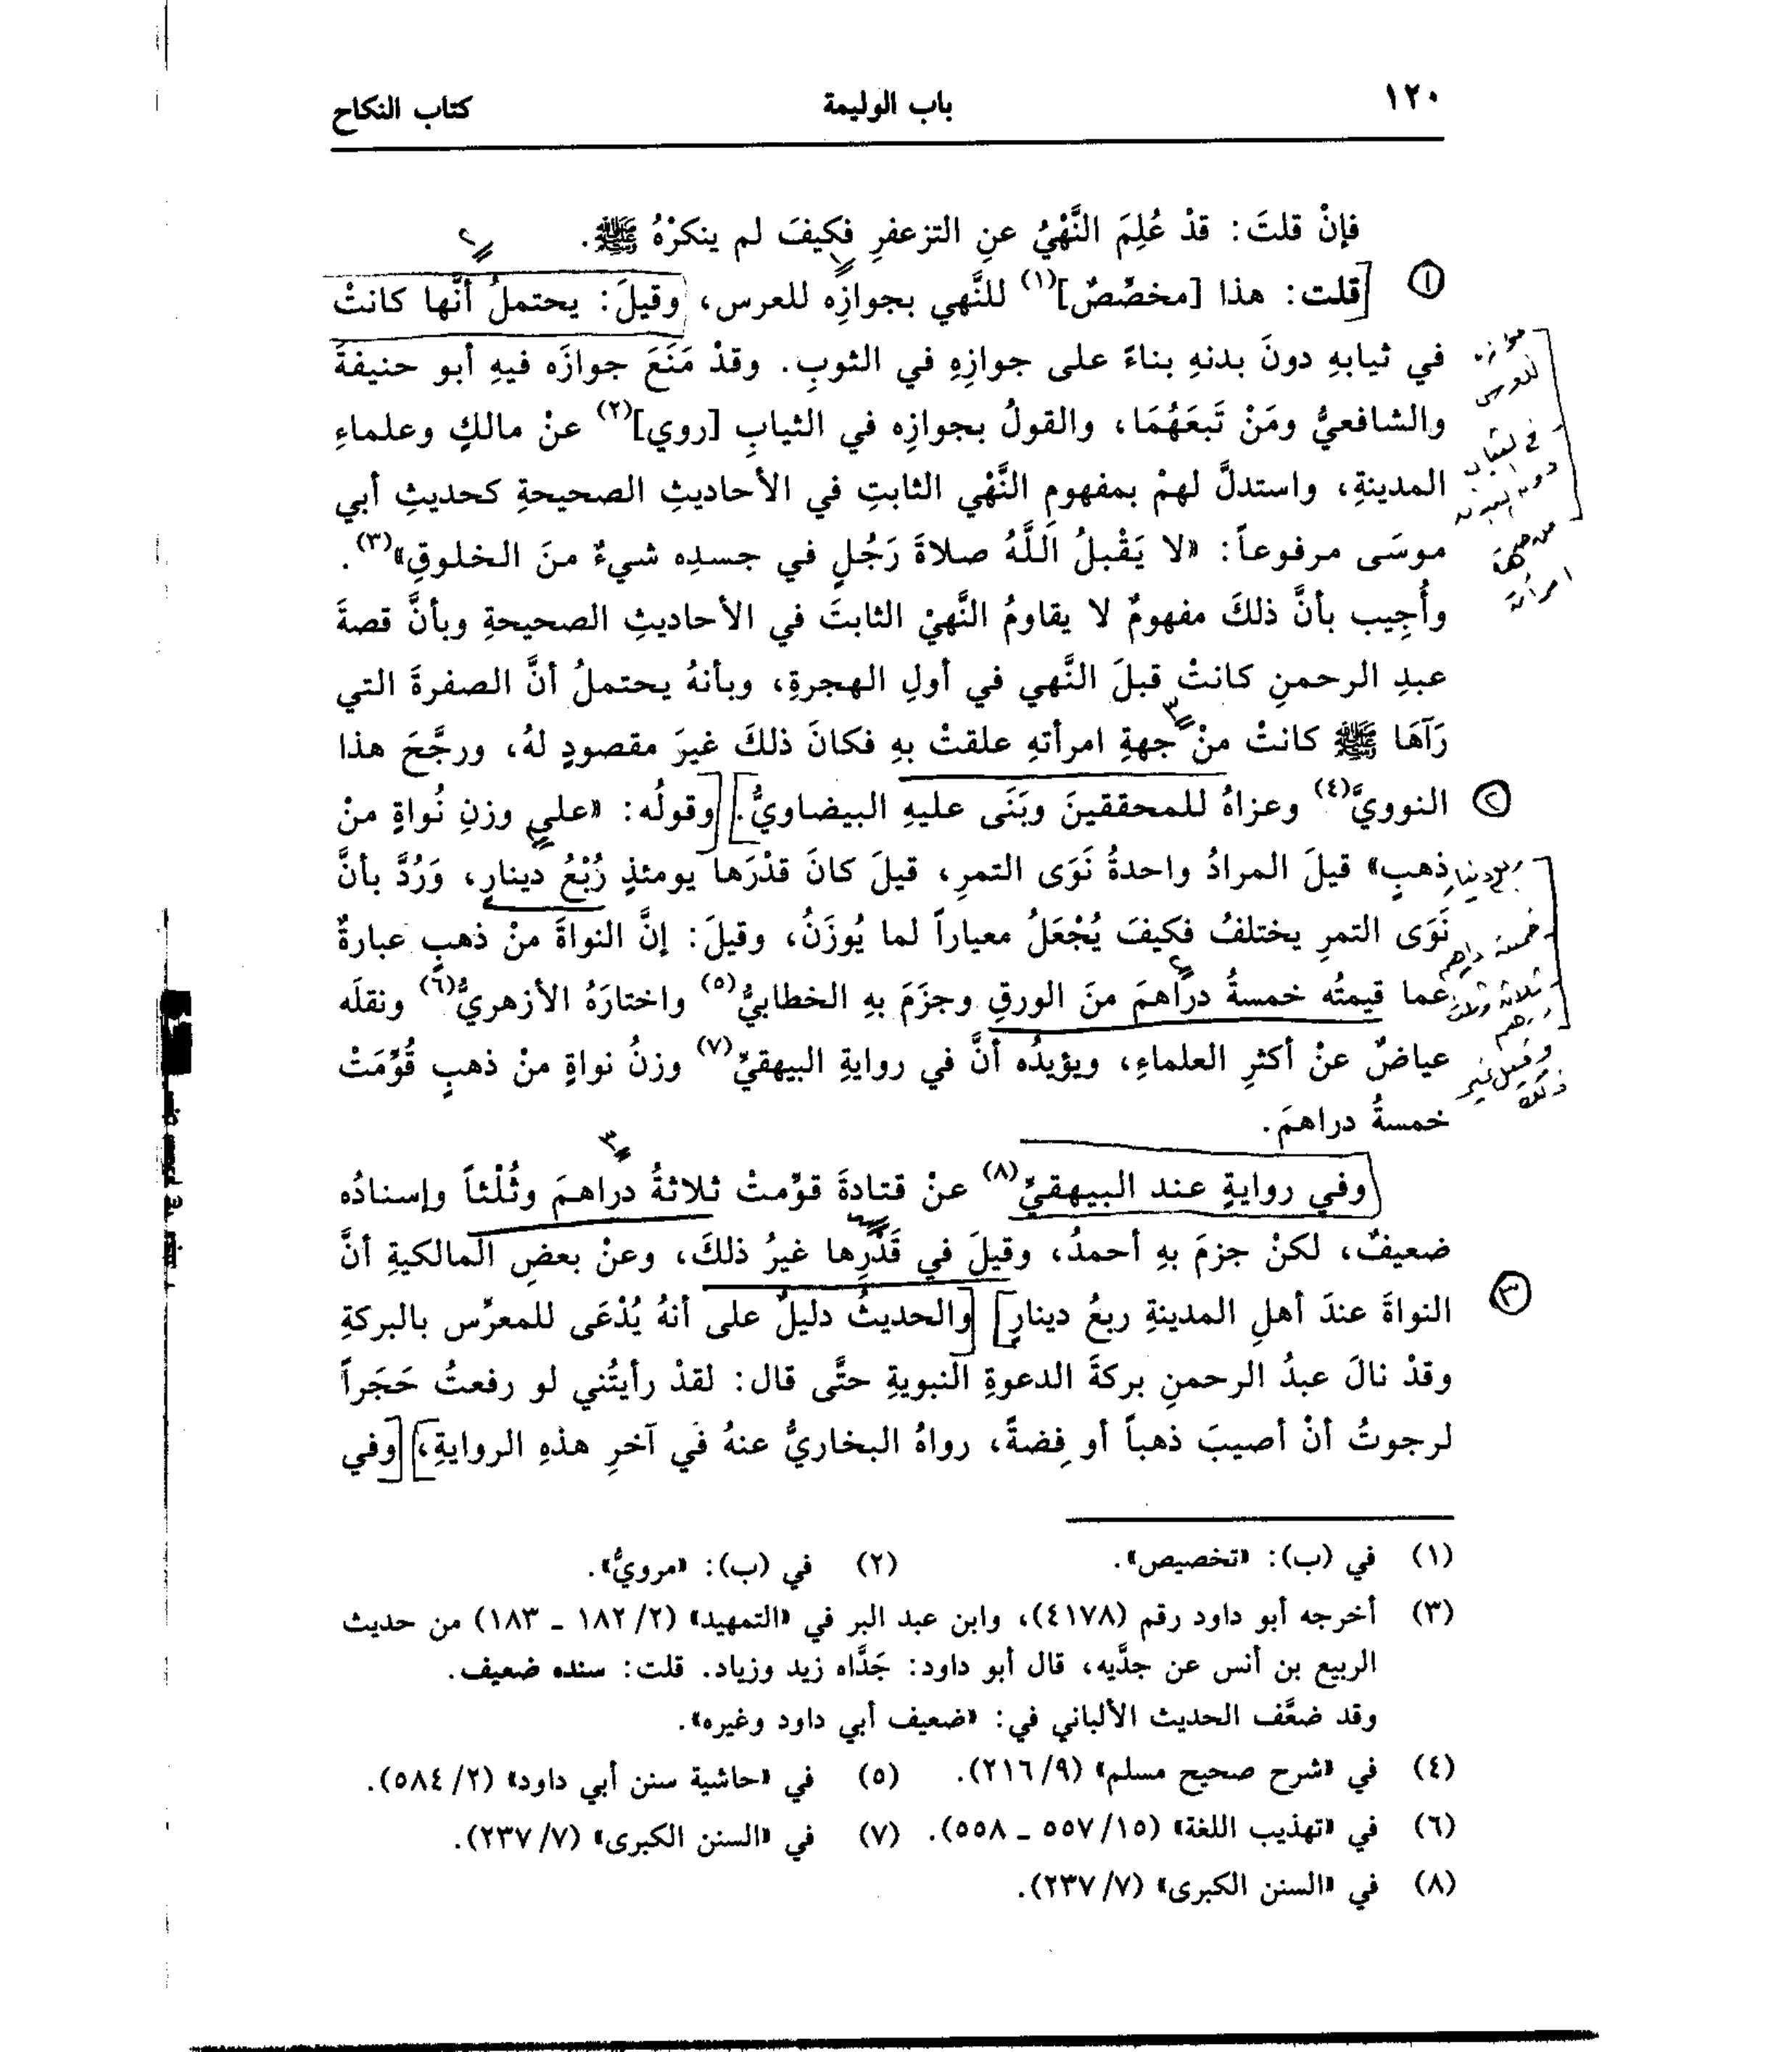 ١٢٠ باب الوليمة كتاب النكاح
فإنْ قلتَ: قدْ عُلِمَ النَّهْيُ عنِ التزعفرِ فكيفَ لم ينكرْهُ ﷺ.
١
قلت: هذا [مخصِّصٌ](١) للنَّهي بجوازِه للعرس، وقيلَ: يحتملُ أنَّها كانتْ
في ثيابهِ دونَ بدنهِ بناءً على جوازِهِ في الثوبِ. وقدْ مَنَعَ جوازَه فيهِ أبو حنيفةَ
والشافعيُّ ومَنْ تَبعَهُمَا، والقولُ بجوازِه في الثيابِ [روي](٢) عنْ مالكٍ وعلماءِ
المدينةِ، واستدلَّ لهمْ بمفهومِ النَّهْي الثابتِ في الأحاديثِ الصحيحةِ كحديثِ أبي
موسَى مرفوعاً: «لا يَقْبلُ اللَّهُ صلاةَ رَجُلٍ في جسدِه شيءٌ منَ الخلوقِ»(٣).
وأُجِيب بأنَّ ذلكَ مفهومٌ لا يقاومُ النَّهيْ الثابتَ في الأحاديثِ الصحيحةِ وبأنَّ قصةَ
عبدِ الرحمنِ كانتْ قبلَ النَّهي في أولِ الهجرةِ، وبأنهُ يحتملُ أنَّ الصفرةَ التي
رَآهَا ﷺ كانتْ منْ جهةِ امرأتهِ علقتْ بهِ فكانَ ذلكَ غيرَ مقصودٍ لهُ، ورجَّحَ هذا
٢
النوويَّ(٤) وعزاهُ للمحققينَ وبَنَى عليهِ البيضاويُّ. وقولُه: «على وزنِ نُواةٍ منْ
ذهبٍ» قيلَ المرادُ واحدةُ نَوَى التمرِ، قيلَ كانَ قدْرَها يومئذٍ رُبْعُ دينارٍ، وَرُدَّ بأنَّ
نَوَى التمرِ يختلفُ فكيفَ يُجْعَلُ معياراً لما يُوزَنُ، وقيلَ: إنَّ النواةَ منْ ذهبٍ عبارةٌ
عما قيمتُه خمسةُ دراهمَ منَ الورقِ وجزَمَ بهِ الخطابيُّ(٥) واختارَهُ الأزهريُّ(٦) ونقلَه
عياضٌ عنْ أكثرِ العلماءِ، ويؤيدُه أنَّ في روايةِ البيهقيِّ(٧) وزنُ نواةٍ منْ ذهبٍ قُوِّمَتْ
خمسةُ دراهمَ.
وفي روايةٍ عند البيهقيِّ(٨) عنْ قتادةَ قوِّمتْ ثلاثةُ دراهمَ وثُلْثاً وإسنادُه
ضعيفٌ، لكنْ جزمَ بهِ أحمدُ، وقيلَ في قَدْرِها غيرُ ذلكَ، وعنْ بعضِ المالكيةِ أنَّ
٣
النواةَ عندَ أهلِ المدينةِ ربعُ دينارٍ والحديثُ دليلٌ على أنهُ يُدْعَى للمعرِّس بالبركةِ
وقدْ نالَ عبدُ الرحمنِ بركةَ الدعوةِ النبويةِ حتَّى قال: لقدْ رأيتُني لو رفعتُ حَجَراً
لرجوتُ أنْ أصيبَ ذهباً أو فِضةً، رواهُ البخاريُّ عنهُ في آخرِ هذهِ الروايةِ، وفي
جوازه
للعرس
في الثياب
دون البدن
من جهة
امرأته
ربع دينار
خمسة دراهم
ثلاثة وثلث
درهم
وقيل غير
ذلك
(١) في (ب): «تخصيص». (٢) في (ب): «مرويٌّ».
(٣) أخرجه أبو داود رقم (٤١٧٨)، وابن عبد البر في «التمهيد» (٢/ ١٨٢ ـ ١٨٣) من حديث
الربيع بن أنس عن جدَّيه، قال أبو داود: جَدَّاه زيد وزياد. قلت: سنده ضعيف.
وقد ضعَّف الحديث الألباني في: «ضعيف أبي داود وغيره».
(٤) في «شرح صحيح مسلم» (٩/ ٢١٦). (٥) في «حاشية سنن أبي داود» (٢/ ٥٨٤).
(٦) في «تهذيب اللغة» (١٥/ ٥٥٧ ـ ٥٥٨). (٧) في «السنن الكبرى» (٧/ ٢٣٧).
(٨) في «السنن الكبرى» (٧/ ٢٣٧).